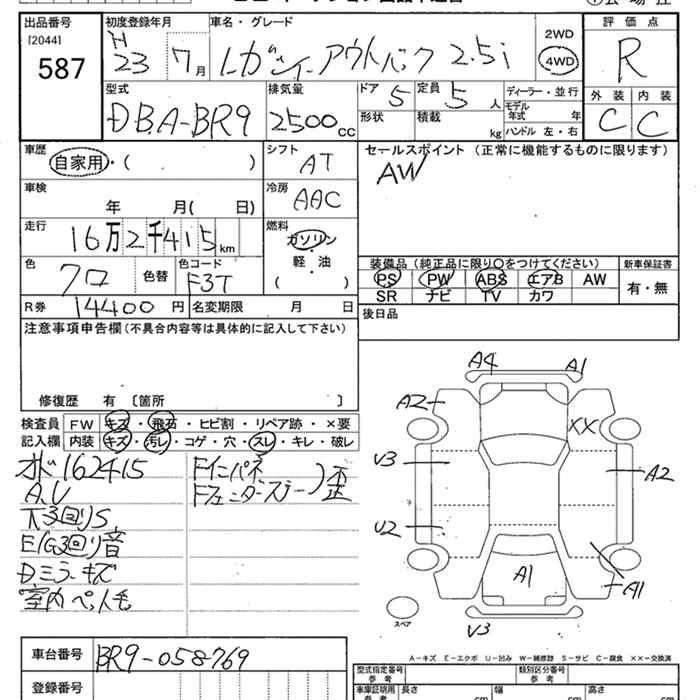 出品番号 初度登録年月 車名・グレード 評価点
[2044] H
587 23 7月 レガシィアウトバック 2.5i 2WD 4WD R
外装 内装
C C
型式 排気量 ドア 5 定員 5人 ディーラー・並行
DBA-BR9 2500cc 形状 積載 kg モデル年式 年
ハンドル 左・右
車歴 シフト セールスポイント (正常に機能するものに限ります)
自家用・( ) AT AW
車検 冷房
年 月( 日) AAC
走行 燃料
16万2千415km ガソリン
軽・油
( )
色 色コード
クロ 色替 F3T
装備品 (純正品に限り○をつけてください) 新車保証書
PS PW ABS エアB AW 有・無
SR ナビ TV カワ
R券 14400円 名変期限 月 日
後日品
注意事項申告欄 (不具合内容等は具体的に記入して下さい)
修復歴 有 〔箇所 〕
検査員 FW キズ・飛石・ヒビ割・リペア跡・×要
記入欄 内装 キズ・汚レ・コゲ・穴・スレ・キレ・破レ
オドメ162415 Fインパネ
A,U Fフェンダーステー)歪
下3回りS
E/G3回り音
Dミラーキズ
室内ペット毛
A4 A1
A2
XX
V3 A2
U2
A1
A1
スペア
V3
A-キズ E-エクボ U-凹み W-補修跡 S-サビ C-腐食 XX-交換済
車台番号 BR9-058769
登録番号
型式指定番号 類別区分番号
参考 参考
車庫証明用 長さ 幅 高さ
参考 cm cm cm